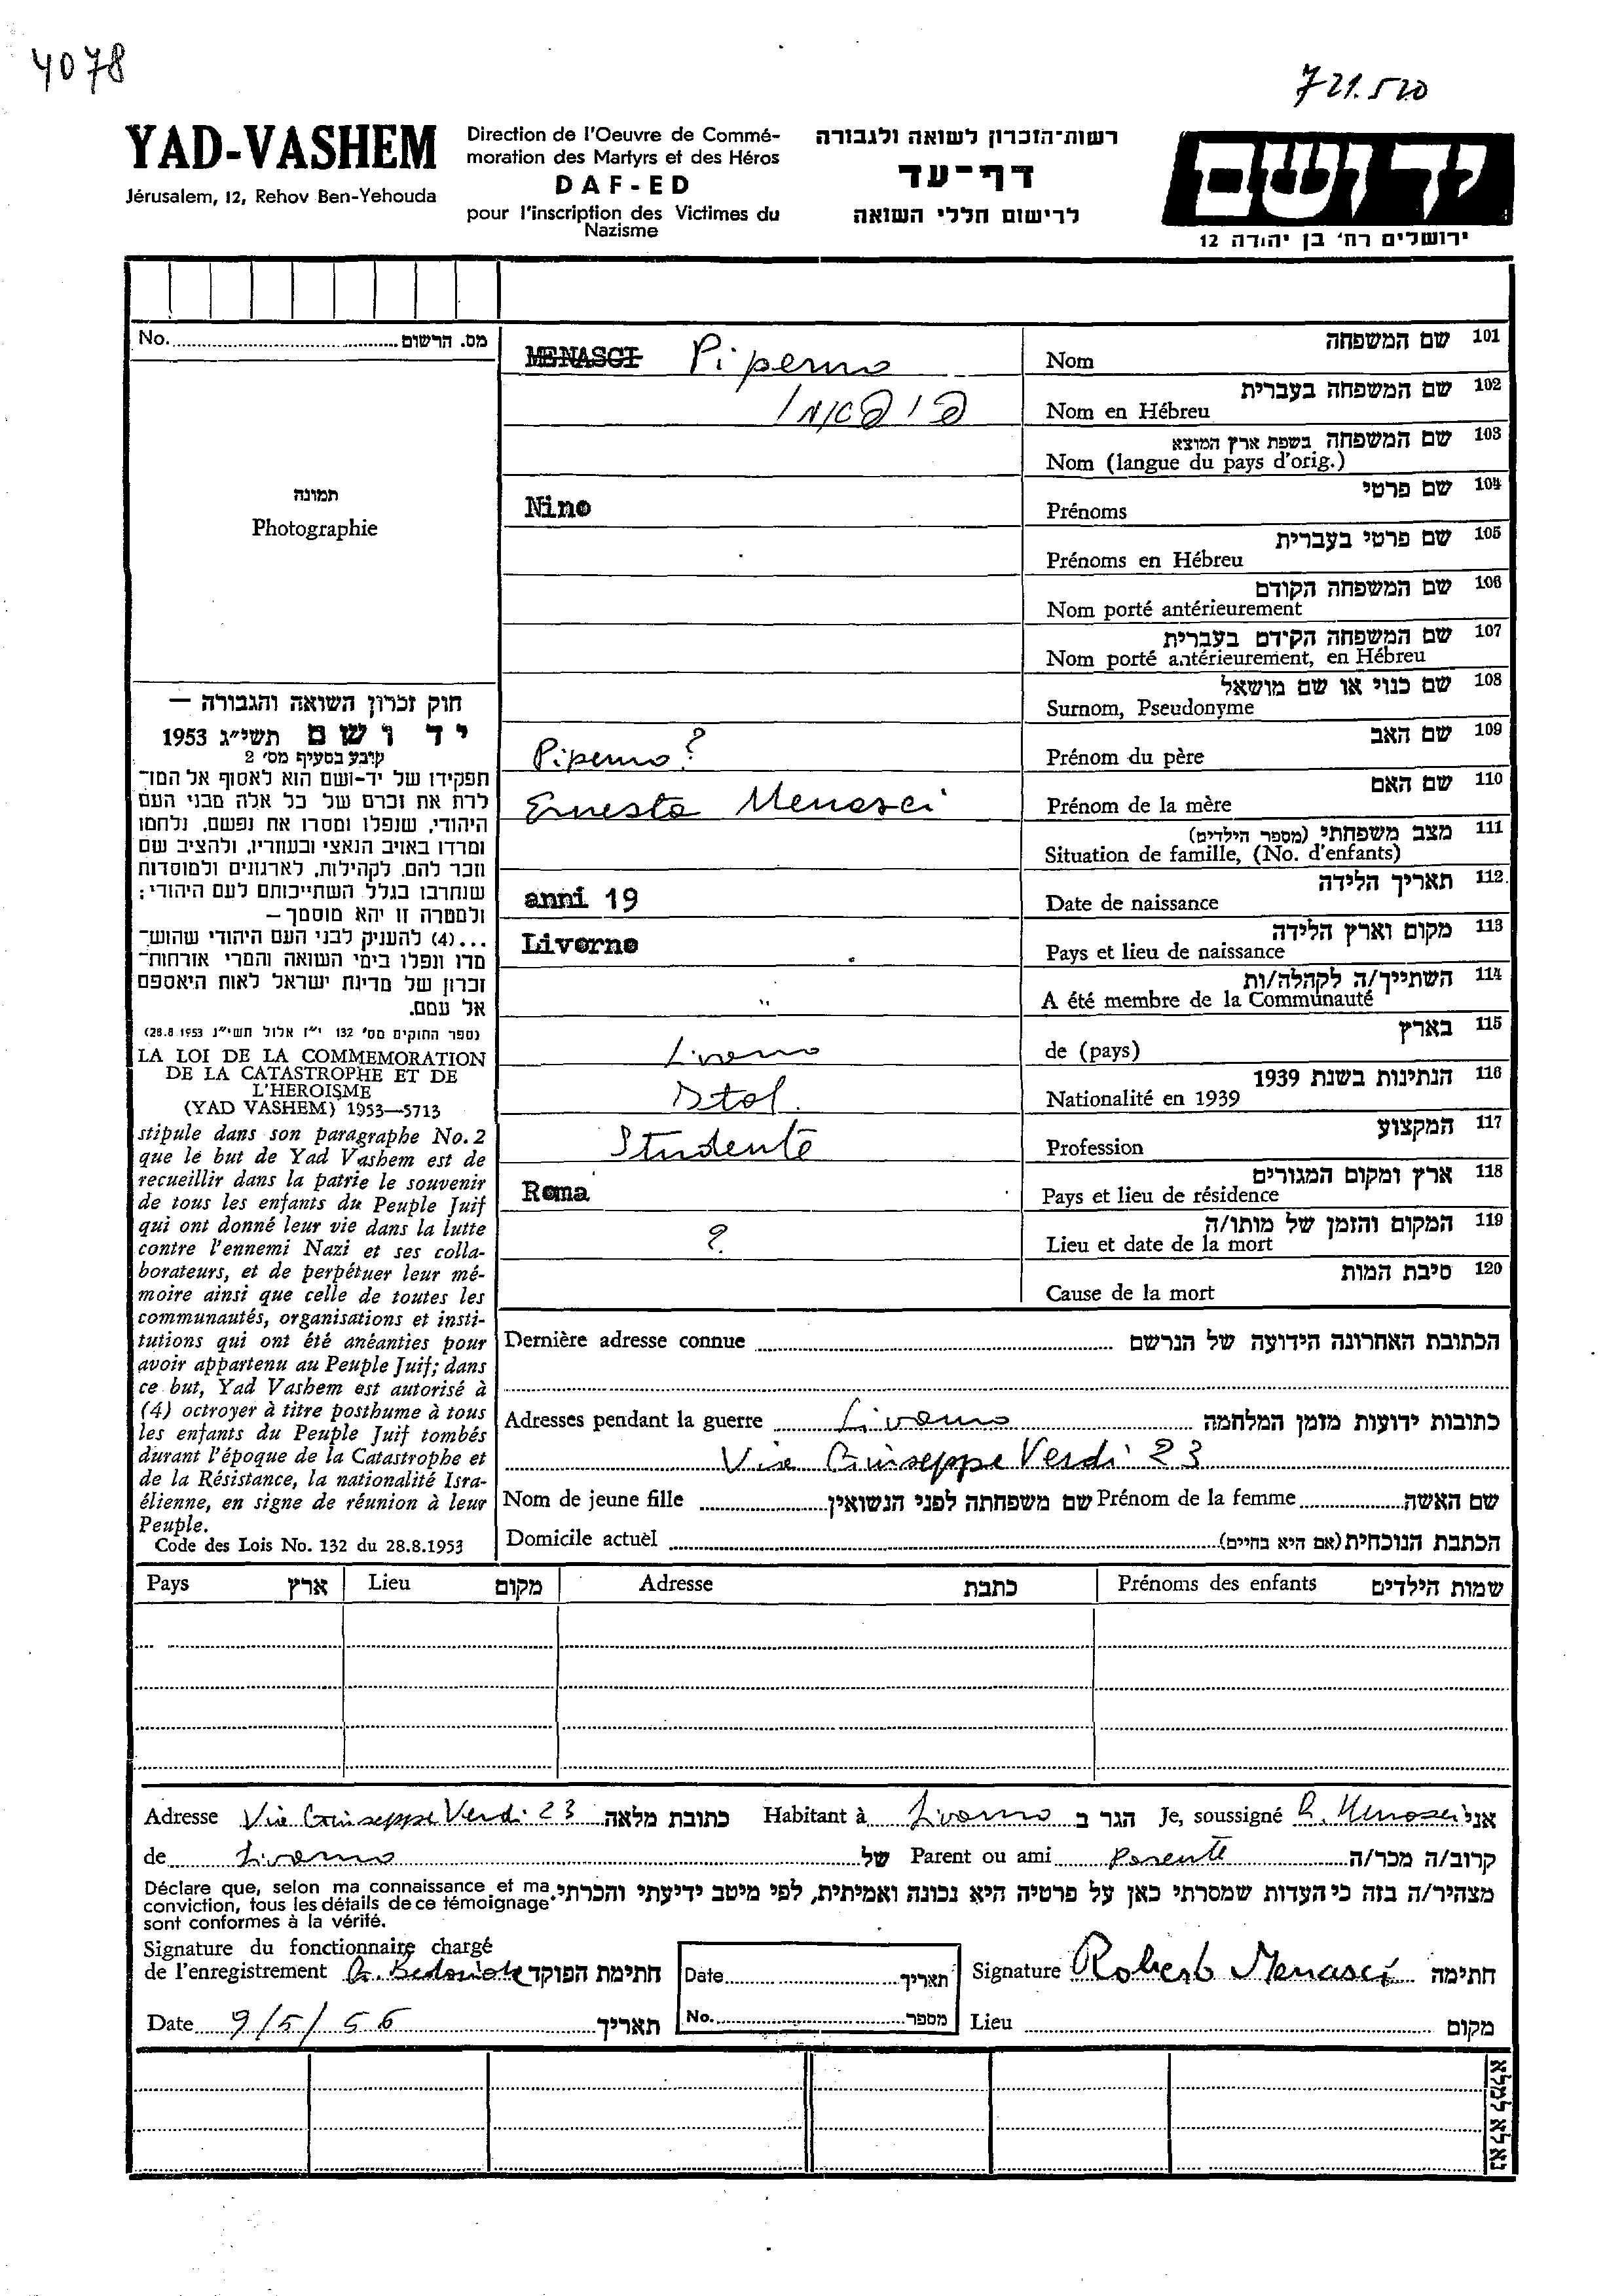 4078
721.520
YAD-VASHEM
Jérusalem, 12, Rehov Ben-Yehouda
Direction de l'Oeuvre de Commé-
moration des Martyrs et des Héros
DAF-ED
pour l'inscription des Victimes du
Nazisme
רשות-הזכרון לשואה ולגבורה
דף-עד
לרישום חללי השואה
יד ושם
ירושלים רח' בן יהודה 12
No. מס. הרשום
תמונה
Photographie
101 שם המשפחה
Nom
MENASCI Piperno
102 שם המשפחה בעברית
Nom en Hébreu
103 שם המשפחה בשפת ארץ המוצא
Nom (langue du pays d'orig.)
104 שם פרטי
Prénoms
Nino
105 שם פרטי בעברית
Prénoms en Hébreu
106 שם המשפחה הקודם
Nom porté antérieurement
107 שם המשפחה הקודם בעברית
Nom porté antérieurement, en Hébreu
108 שם כנוי או שם מושאל
Surnom, Pseudonyme
109 שם האב
Prénom du père
Piperno?
110 שם האם
Prénom de la mère
Ernesta Menasci
111 מצב משפחתי (מספר הילדים)
Situation de famille, (No. d'enfants)
112. תאריך הלידה
Date de naissance
anni 19
113 מקום וארץ הלידה
Pays et lieu de naissance
Livorno
114 השתייך/ה לקהלה/ות
A été membre de la Communauté
"
115 בארץ
de (pays)
Livorno
116 הנתינות בשנת 1939
Nationalité en 1939
Ital.
117 המקצוע
Profession
Studente
118 ארץ ומקום המגורים
Pays et lieu de résidence
Roma
119 המקום והזמן של מותו/ה
Lieu et date de la mort
?
120 סיבת המות
Cause de la mort
חוק זכרון השואה והגבורה —
יד ושם תשי"ג 1953
קובע בסעיף מס' 2
תפקידו של יד-ושם הוא לאסוף אל המו-
לדת את זכרם של כל אלה מבני העם
היהודי, שנפלו ומסרו את נפשם, נלחמו
ומרדו באויב הנאצי ובעוזריו, ולהציב שם
וזכר להם, לקהילות, לארגונים ולמוסדות
שנחרבו בגלל השתייכותם לעם היהודי;
ולמטרה זו יהא מוסמך —
...(4) להעניק לבני העם היהודי שהוש-
מדו ונפלו בימי השואה והמרי אזרחות-
זכרון של מדינת ישראל לאות היאספם
אל עמם.
(ספר החוקים מס' 132 י"ז אלול תשי"ג 28.8.1953)
LA LOI DE LA COMMEMORATION
DE LA CATASTROPHE ET DE
L'HEROISME
(YAD VASHEM) 1953—5713
stipule dans son paragraphe No. 2
que le but de Yad Vashem est de
recueillir dans la patrie le souvenir
de tous les enfants du Peuple Juif
qui ont donné leur vie dans la lutte
contre l'ennemi Nazi et ses colla-
borateurs, et de perpétuer leur mé-
moire ainsi que celle de toutes les
communautés, organisations et insti-
tutions qui ont été anéanties pour
avoir appartenu au Peuple Juif; dans
ce but, Yad Vashem est autorisé à
(4) octroyer à titre posthume à tous
les enfants du Peuple Juif tombés
durant l'époque de la Catastrophe et
de la Résistance, la nationalité Isra-
élienne, en signe de réunion à leur
Peuple.
Code des Lois No. 132 du 28.8.1953
Dernière adresse connue הכתובת האחרונה הידועה של הנרשם
Adresses pendant la guerre Livorno כתובות ידועות מזמן המלחמה
Via Giuseppe Verdi 23
Nom de jeune fille שם משפחתה לפני הנשואין Prénom de la femme שם האשה
Domicile actuel הכתבת הנוכחית (אם היא בחיים)
Pays ארץ Lieu מקום Adresse כתבת Prénoms des enfants שמות הילדים
Adresse Via Giuseppe Verdi 23 כתובת מלאה Habitant à Livorno הגר ב Je, soussigné R. Menasci אני
de Livorno של Parent ou ami Parente קרוב/ה מכר/ה
Déclare que, selon ma connaissance et ma
conviction, tous les détails de ce témoignage
sont conformes à la vérité.
מצהיר/ה בזה כי העדות שמסרתי כאן על פרטיה היא נכונה ואמיתית, לפי מיטב ידיעתי והכרתי.
Signature du fonctionnaire chargé
de l'enregistrement חתימת הפוקד
Date תאריך
No. מספר
Signature Roberto Menasci חתימה
Date 9/5/56 תאריך
Lieu מקום
נא לא למלא